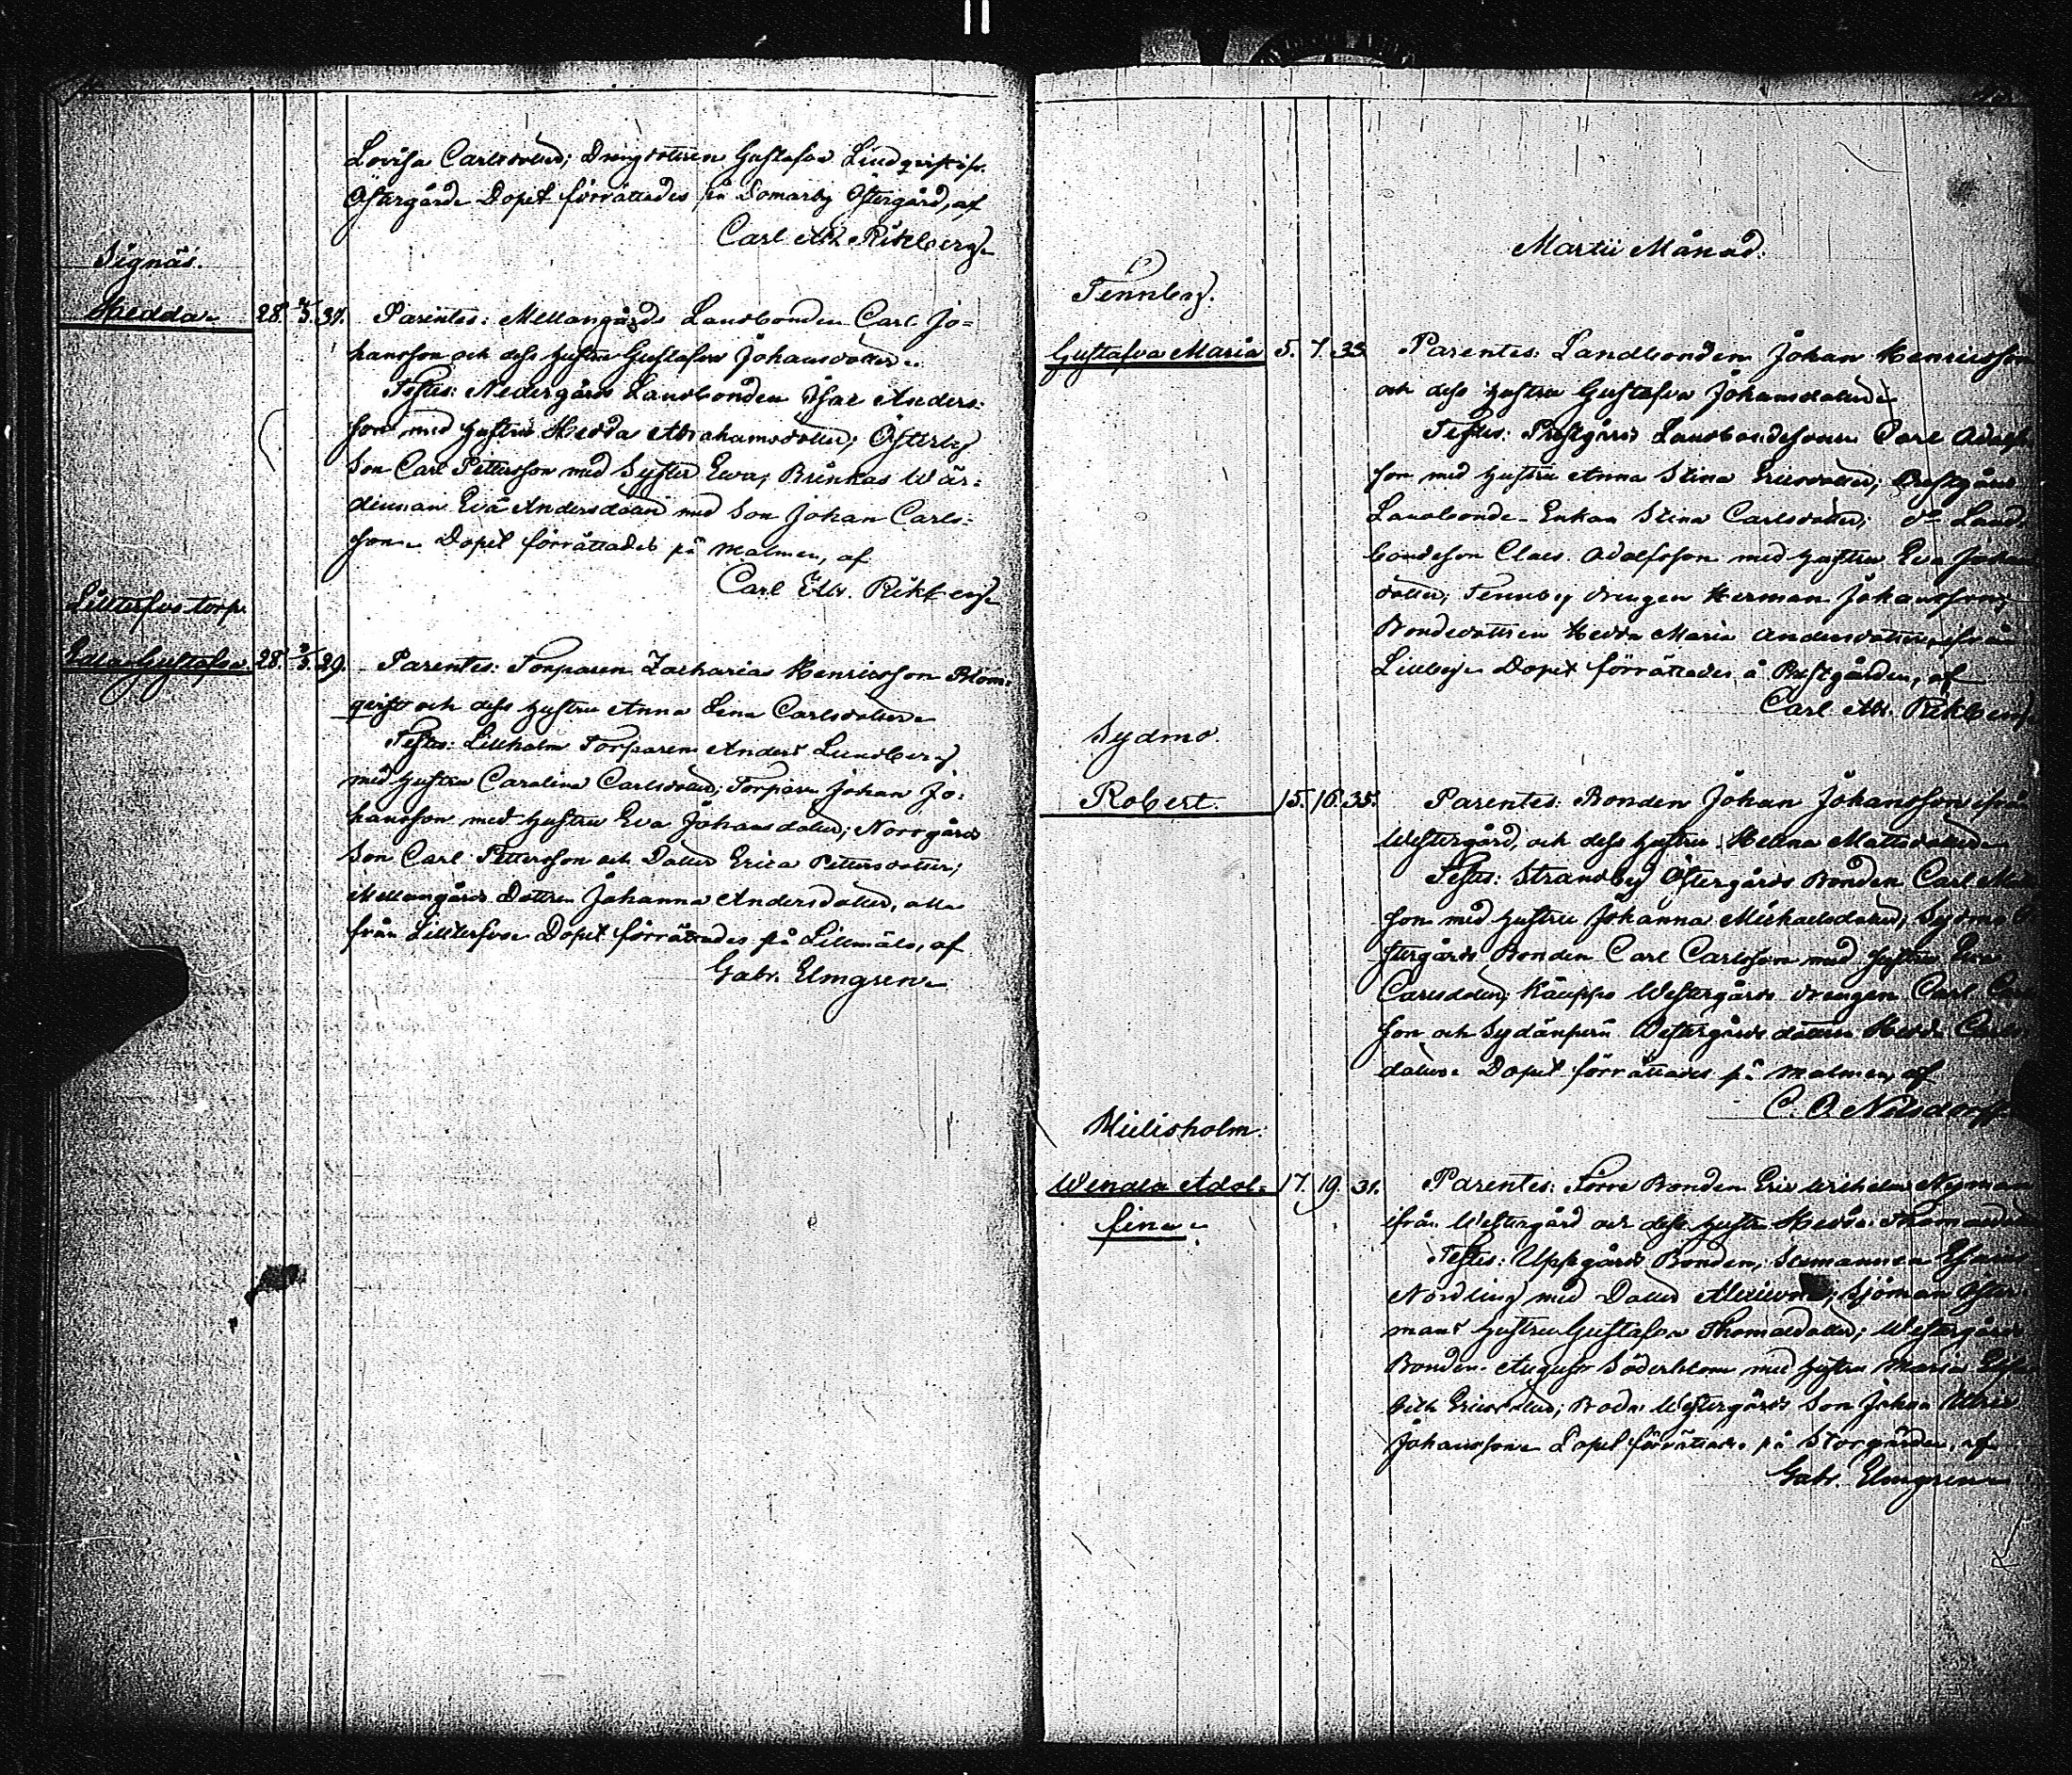 Lovisa Carlsdotter; Drengdottren Gustafva Lindqvist ifr.
Östergård. Dopet förrättades på Domarby Östergård, af
Carl Abr. Rikberg.
Signäs.
Hedda. 28. 2/3. 37. Parentes: Mellangårds Landbonden Carl Jo=
hansson och dess hustru Gustafva Johansdotter.
Testes: Nedergårds Landbonden Isac Anders=
son med hustru Hedda Abrahamsdotter; Österby
Son Carl Pettersson med Syster Ewa; Brinkas Wär=
dinnan Eva Andersdotter med Son Johan Carls=
son. Dopet förrättades på Malmen, af
Carl Abr. Rikberg.
Lilltervo torp.
Edla Gustafva. 28. 2/3. 29. Parentes: Torparen Zacharias Henricsson Blom=
qvist och dess hustru Anna Lena Carlsdotter.
Testes: Lillholm Torparen Anders Lundberg
med hustru Carolina Carlsdotter; Torparn Johan Jo=
hansson med hustru Eva Johansdotter; Norrgårds
Son Carl Pettersson och Dotter Erica Pettersdotter;
Mellangårds Dottren Johanna Andersdotter, alla
från Lilltervo. Dopet förrättades på Lillmälö, af
Gabr. Elmgren.
Martii Månad.
Tennby.
Gustafva Maria 5. 7. 33. Parentes: Landbonden Johan Henricsson
och dess hustru Gustafva Johansdotter.
Testes: Prestgårds Landbondesonen Carl Adolfs
son med hustru Anna Stina Ericsdotter; Prestgårds
Landbonde-Enkan Stina Carlsdotter; do Land
bondeson Claes Adolfsson med hustru Eva Johans
dotter; Tennby drengen Herman Johansson;
Bondedottren Hedda Maria Andersdotter, ifrån
Lilleby. Dopet förrättades å Prestgården, af
Carl Abr. Rikberg.
Sydmo.
Robert. 15. 16. 35. Parentes: Bonden Johan Johansson ifrån
Westergård, och dess hustru Helena Mattsdotter.
Testes: Strandby Östergårds Bonden Carl
son med hustru Johanna Michaelsdotter; Sydmo Ö
stergårds Bonden Carl Carlsson med hustru Eva
Carlsdotter; Käuppo Westergårds drengen Carl
son och Sydänperä Westergårds dottren Hedda Carls
dotter. Dopet förrättades på Malmen, af
C. O. Nilsdorff
Mielisholm.
Wendla Adol= 17. 19. 31. Parentes: Förre Bonden Eric Wilhelm Nyman
fina. ifrån Westergård och dess hustru Hedda Thomasdotter
Testes: Uppgårds Bonden, Sexmannen
Nordling med Dotter; Sjöman Öster=
mans hustru Gustafva Thomasdotter; Westergårds
Bonden August Söderblom med hustru Maria Elisa
beth Ericsdotter; Boda Westergårds Son Johan Ulric
Johansson. Dopet förrättades på Storgården, af
Gabr. Elmgren.